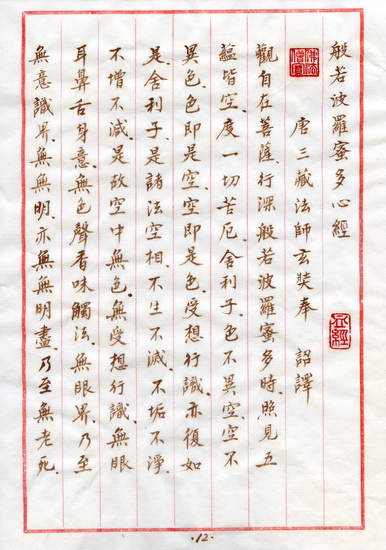 般若波羅蜜多心經
唐三藏法師玄奘奉 詔譯
觀自在菩薩、行深般若波羅蜜多時、照見五
蘊皆空、度一切苦厄、舍利子、色不異空、空不
異色、色即是空、空即是色、受想行識、亦復如
是、舍利子、是諸法空相、不生不滅、不垢不淨、
不增不減、是故空中無色、無受想行識、無眼
耳鼻舌身意、無色聲香味觸法、無眼界、乃至
無意識界、無無明、亦無無明盡、乃至無老死、
·12·